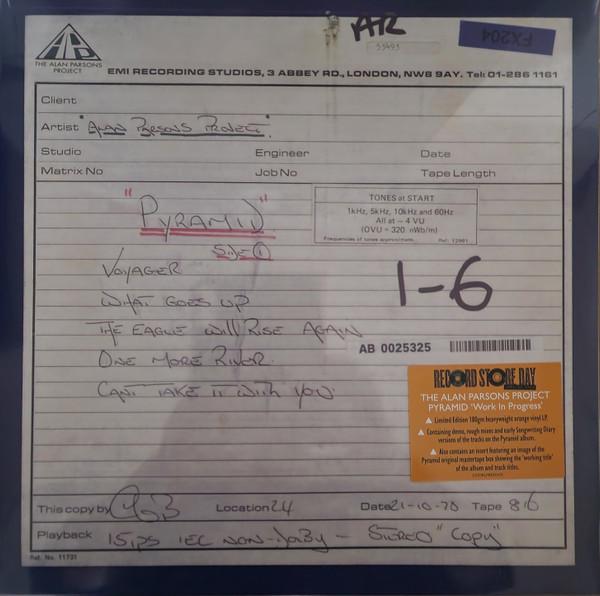 ATR
53493
FX204
THE ALAN PARSONS
PROJECT
EMI RECORDING STUDIOS, 3 ABBEY RD., LONDON, NW8 9AY. Tel: 01-286 1161
Client
Artist "ALAN PARSONS PROJECT"
Studio Engineer Date
Matrix No Job No Tape Length
TONES at START
1kHz, 5kHz, 10kHz and 60Hz
All at – 4 VU
(OVU = 320 nWb/m)
Frequencies of tones approximate. Ref: 12901
"PYRAMID"
SIDE 1
VOYAGER
WHAT GOES UP
THE EAGLE WILL RISE AGAIN
ONE MORE RIVER
CANT TAKE IT WITH YOU
1-6
AB 0025325
RECORD STORE DAY
THE ALAN PARSONS PROJECT
PYRAMID 'Work In Progress'
Limited Edition 180gm heavyweight orange vinyl LP.
Containing demo, rough mixes and early Songwriting Diary
versions of the tracks on the Pyramid album.
Also contains an insert featuring an image of the
Pyramid original mastertape box showing the 'working title'
of the album and track titles.
This copy by Location 24 Date 21-10-78 Tape 816
Playback 15ips IEC NON-DOLBY – STEREO "COPY"
Ref. No. 11731